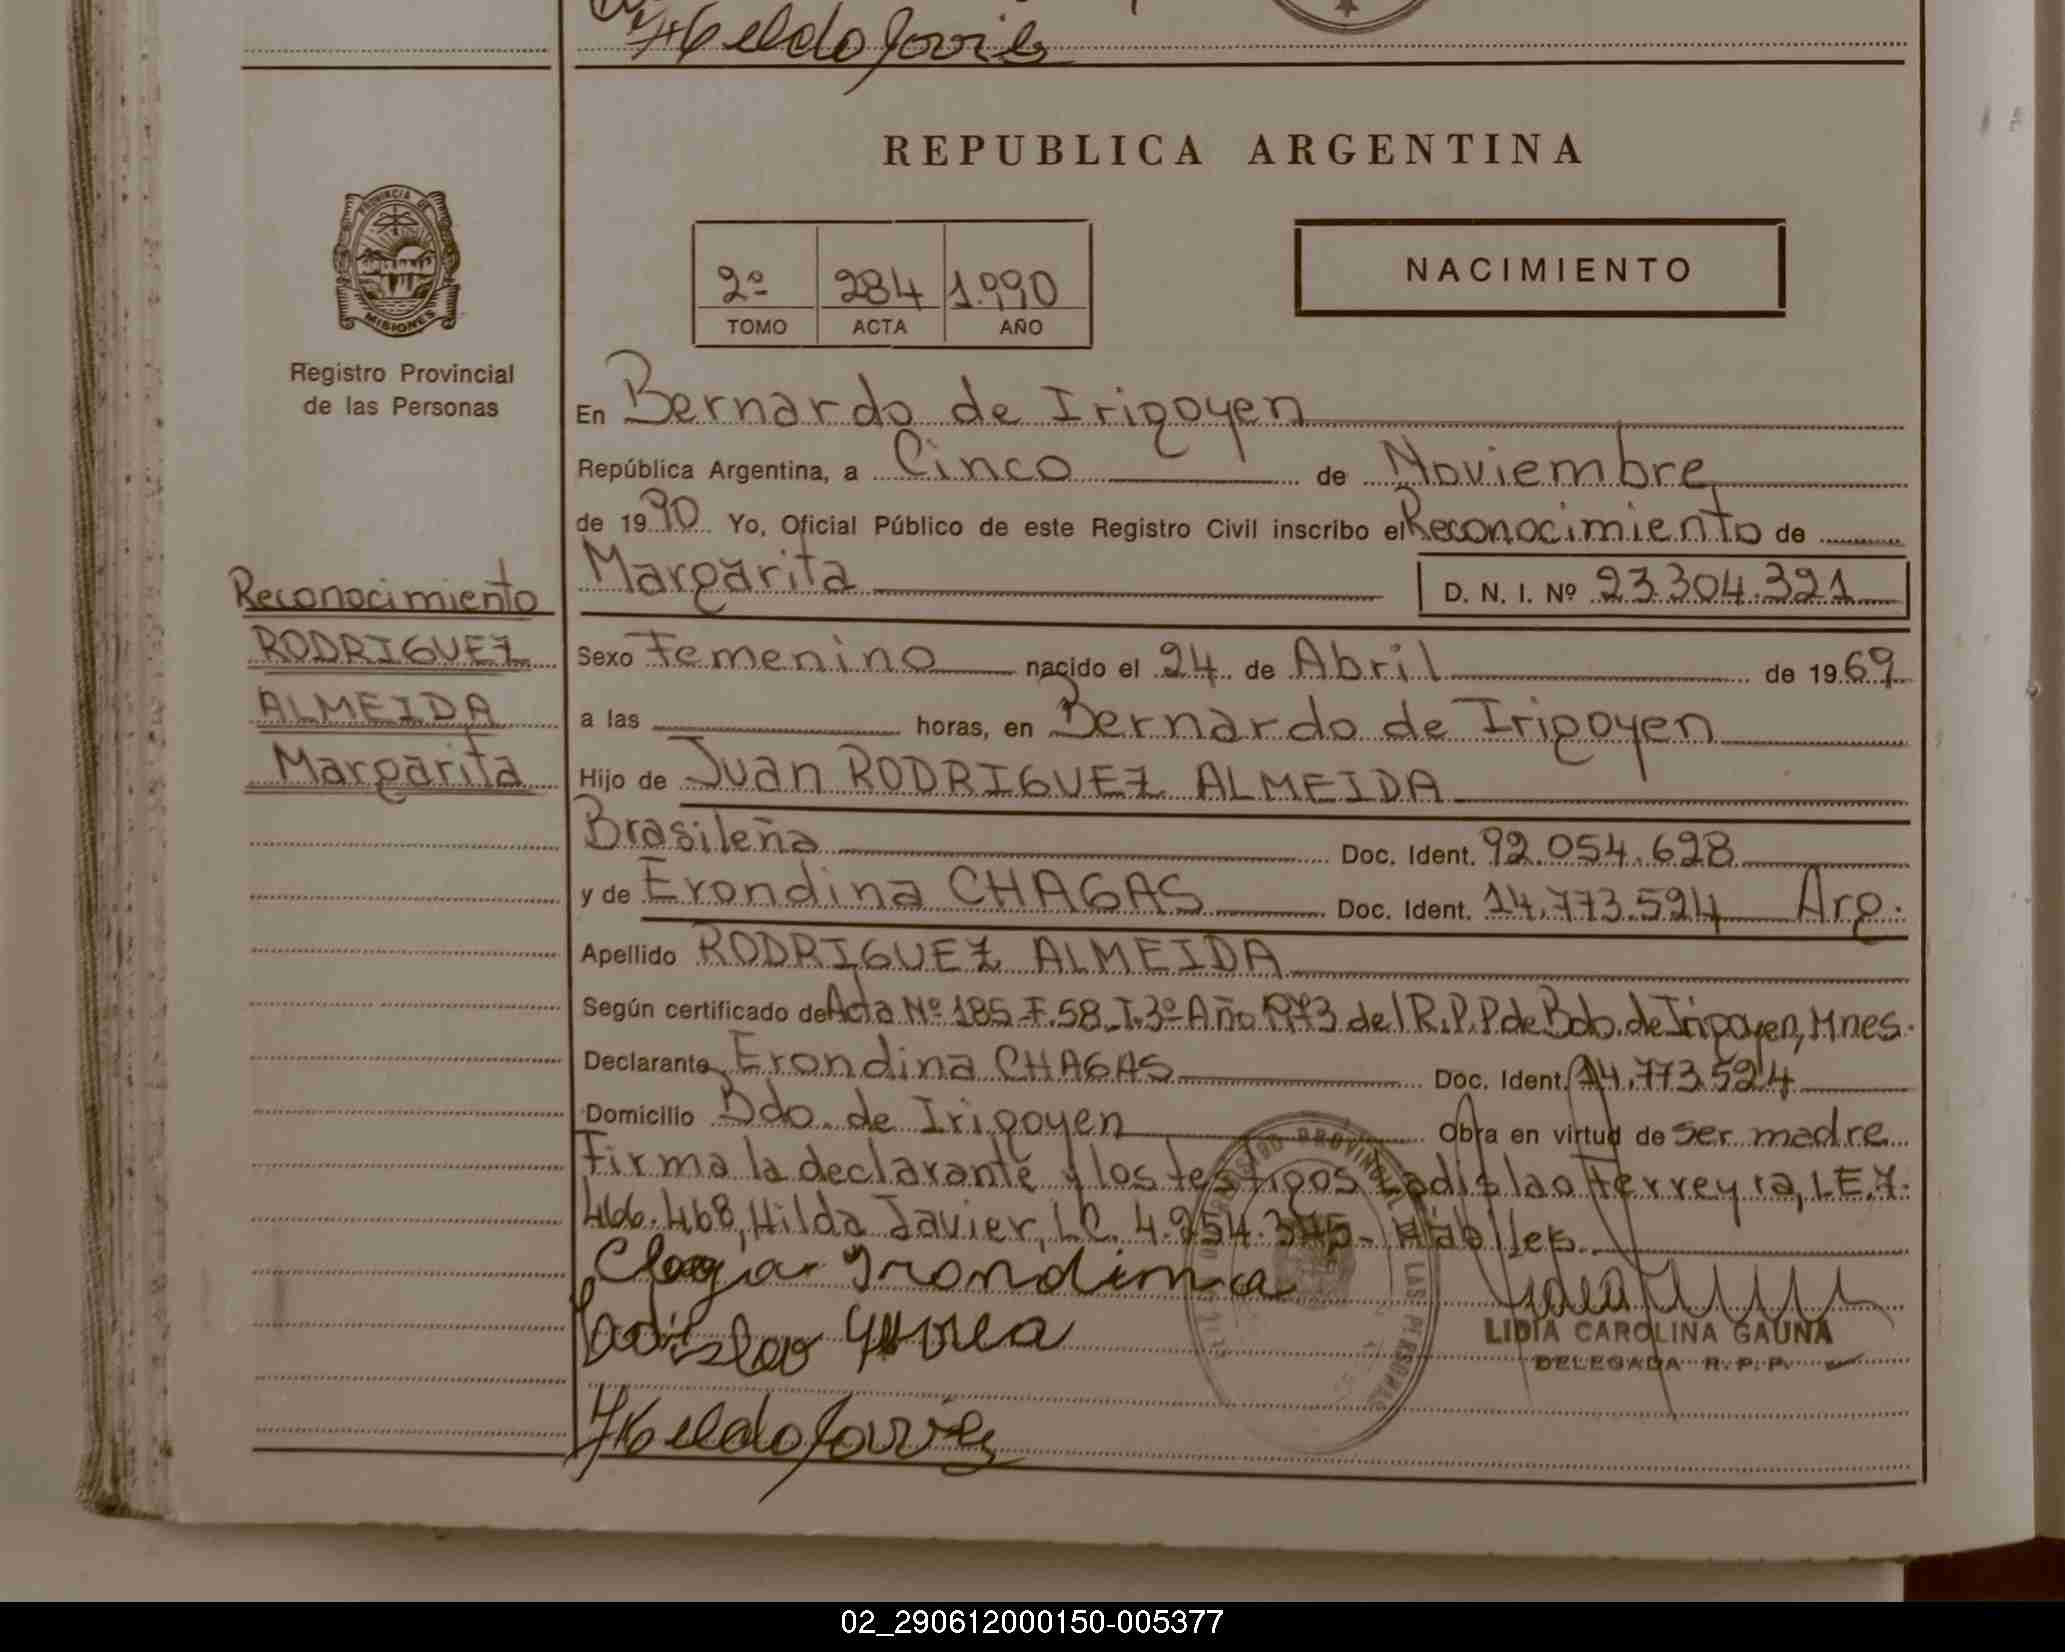 REPUBLICA ARGENTINA
PROVINCIA DE
MISIONES
Registro Provincial
de las Personas
2º 284 1.990
TOMO ACTA AÑO
NACIMIENTO
En Bernardo de Irigoyen
República Argentina, a Cinco de Noviembre
de 1990 Yo, Oficial Público de este Registro Civil inscribo el Reconocimiento de
Margarita D. N. I. Nº 23.304.321
Reconocimiento
RODRIGUEZ
ALMEIDA
Margarita
Sexo Femenino nacido el 24 de Abril de 1969
a las horas, en Bernardo de Irigoyen
Hijo de Juan RODRIGUEZ ALMEIDA
Brasileña Doc. Ident. 92.054.628
y de Erondina CHAGAS Doc. Ident. 14.773.524 Arg.
Apellido RODRIGUEZ ALMEIDA
Según certificado de Acta Nº 185 F.58 T.3º Año 1973 del R.P.P de Bdo. de Irigoyen, Mnes.
Declarante Erondina CHAGAS Doc. Ident. 14.773.524
Domicilio Bdo. de Irigoyen Obra en virtud de ser madre
Firma la declarante y los testigos Ladislao Ferreyra, L.E.7.
466.468, Hilda Javier, L.C. 4.254.345- Hábiles.
LIDIA CAROLINA GAUNA
DELEGADA R. P. P.
02_290612000150-005377